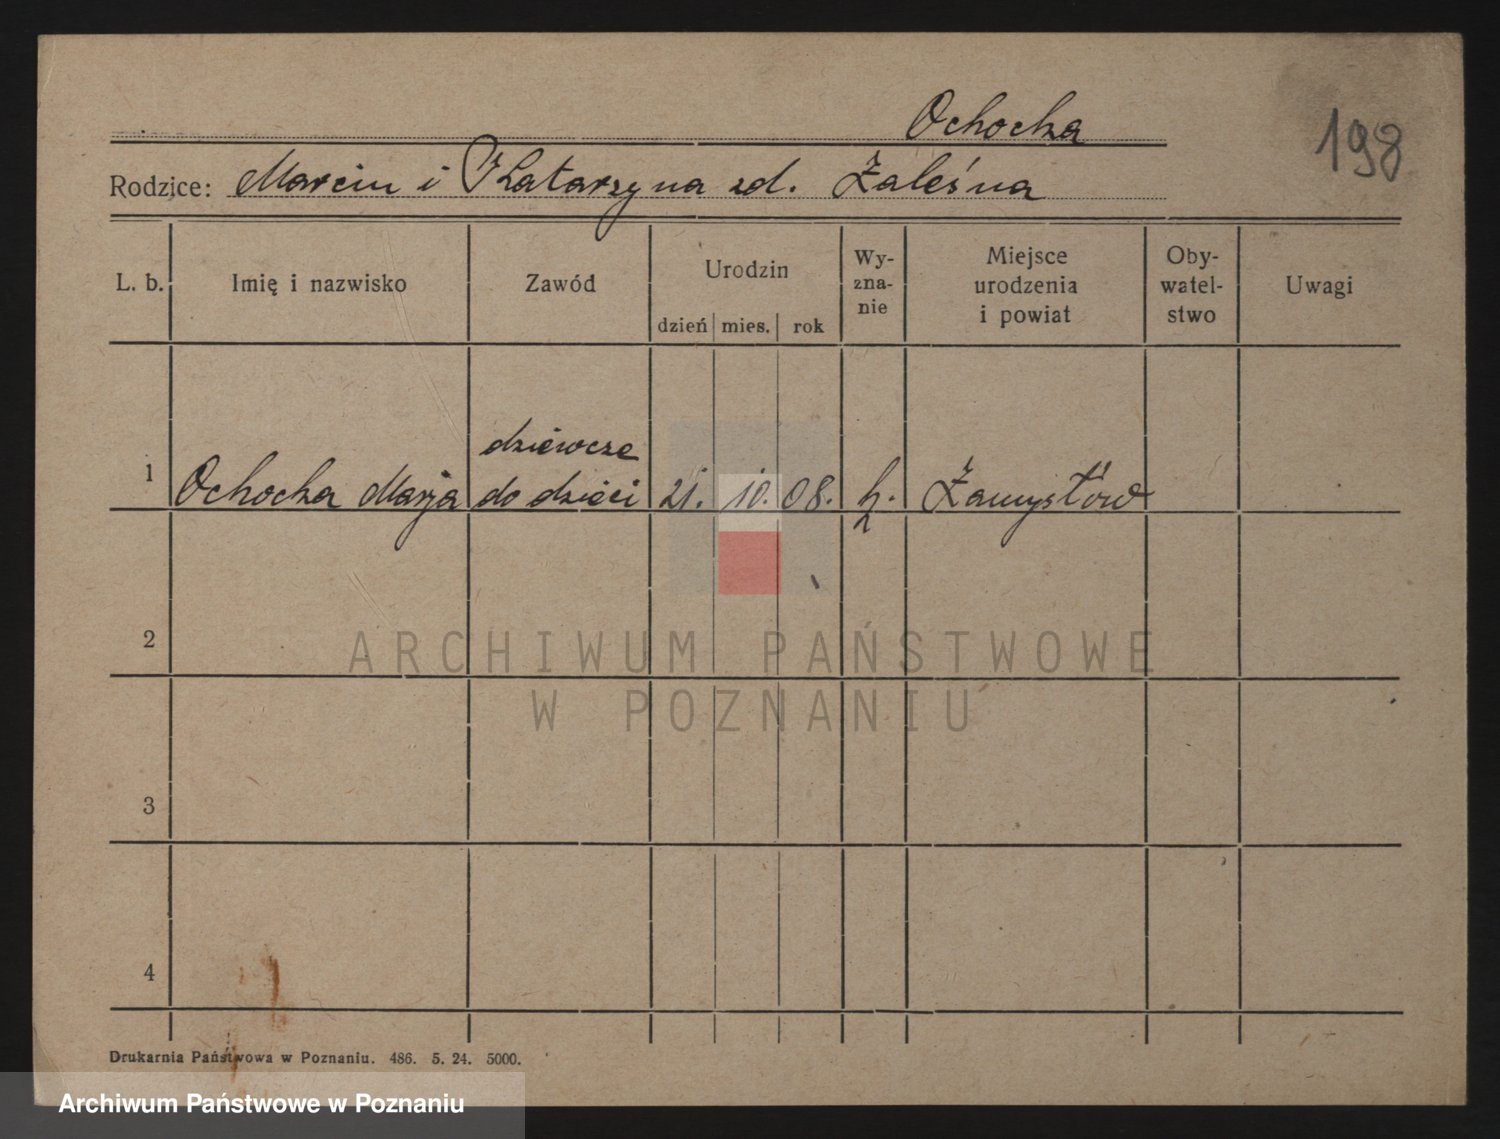 Ochocka
198
Rodzice: Marcin i Katarzyna zd. Zaleśna
L. b.
Imię i nazwisko
Zawód
Urodzin
dzień mies. rok
Wy-
zna-
nie
Miejsce
urodzenia
i powiat
Oby-
watel-
stwo
Uwagi
1 Ochocka Marja
dziewcze
do dzieci
21. 10. 08.
Zamysłów
2
ARCHIWUM PAŃSTWOWE
W POZNANIU
3
4
Drukarnia Państwowa w Poznaniu. 486. 5. 24. 5000.
Archiwum Państwowe w Poznaniu